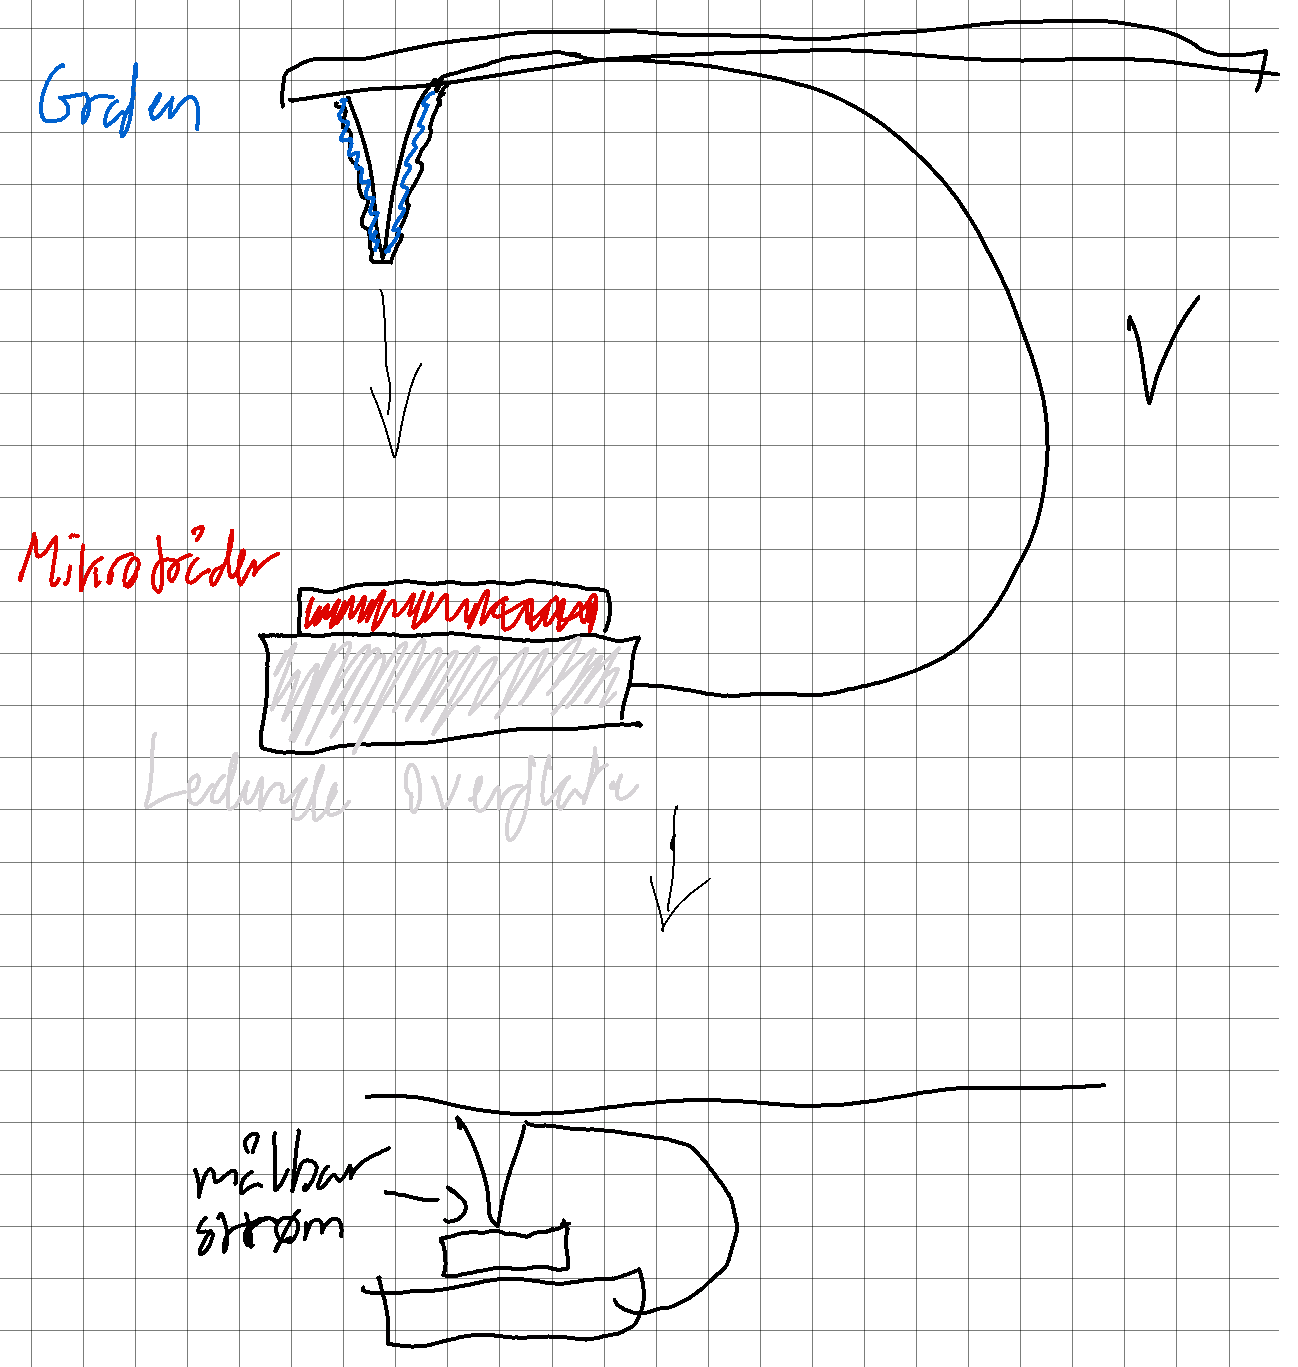 Grafen
Mikrotråder
Ledende overflate
målbar
strøm